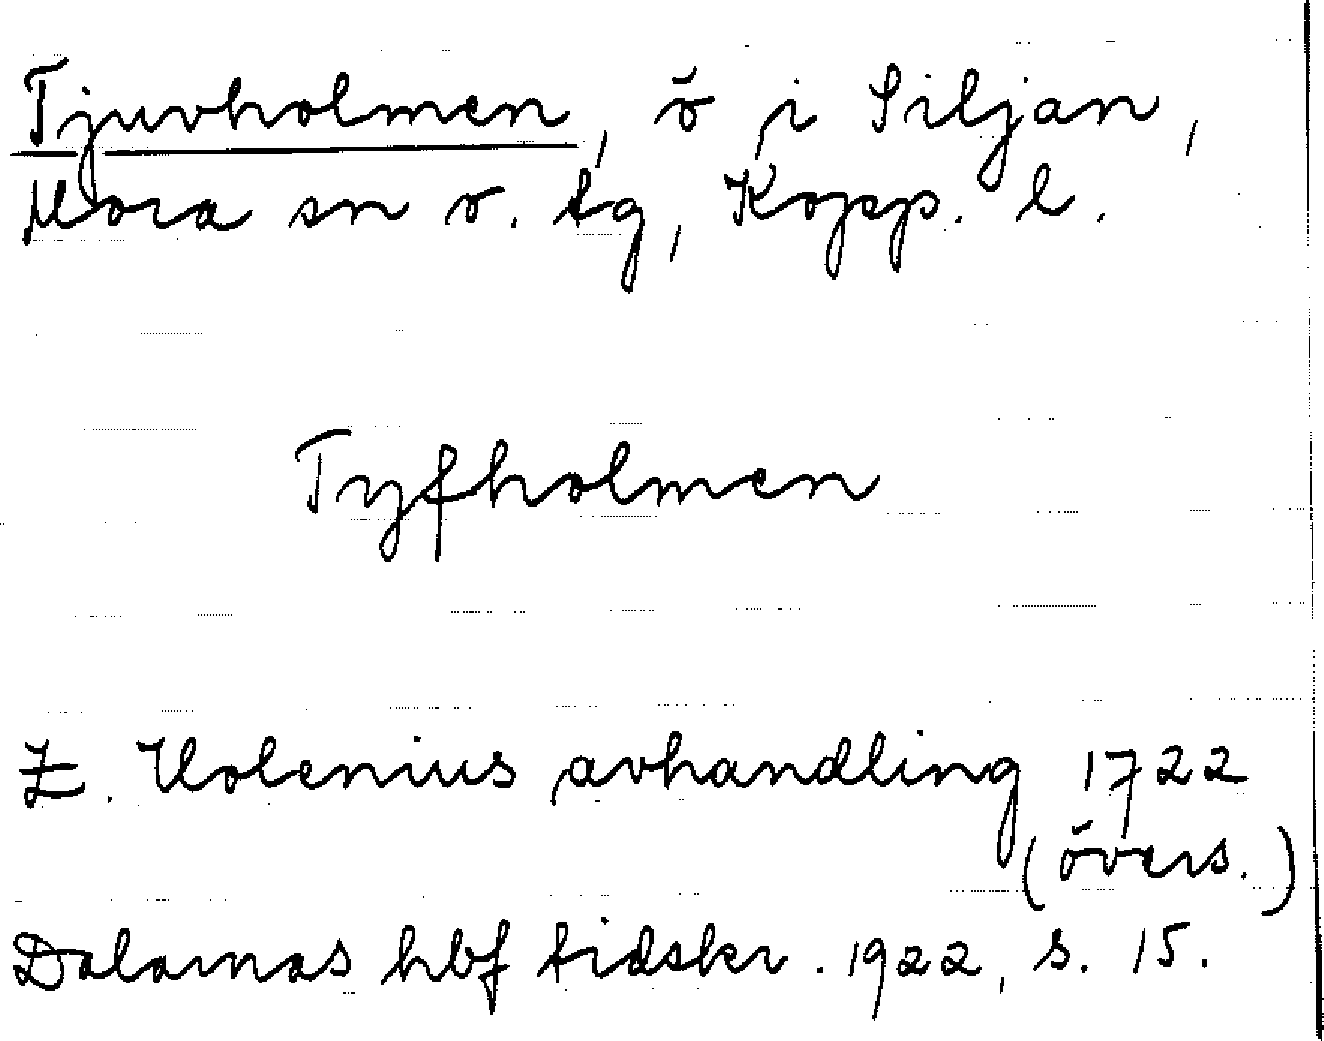 Tjuvholmen, ö i Siljan,
Mora sn o. tg, Kopp. l.
Tyfholmen
E. Holenius avhandling 1722
(övers.)
Dalarnas hbf tidskr. 1922, s. 15.